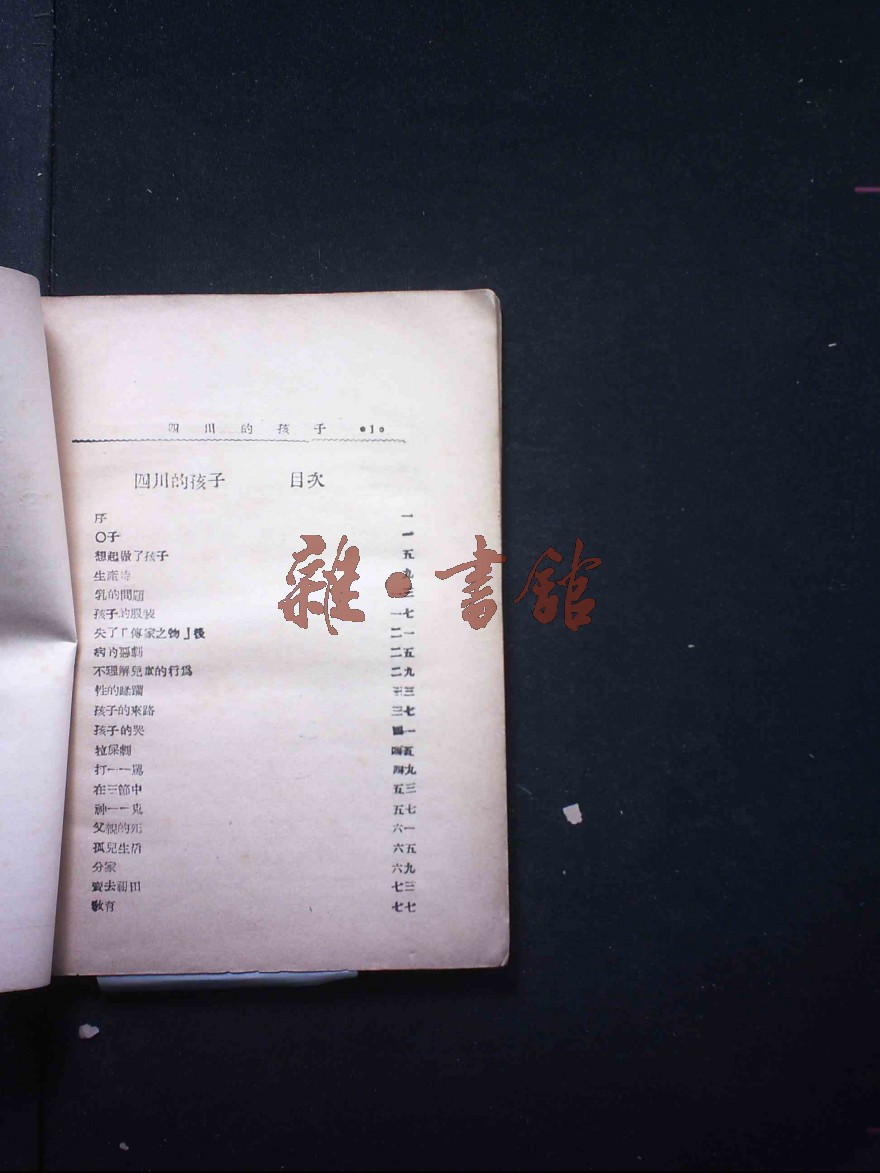 四川的孩子 •1•
四川的孩子 目次
序 一
〇子 一
想起做了孩子 五
生產時 九
乳的問題 三
孩子的服裝 一七
失了「傳家之物」後 二一
病的惡劇 二五
不理解兒童的行爲 二九
性的蹂躪 三三
孩子的來路 三七
孩子的哭 四一
拉屎劇 四五
打一一罵 四九
在三節中 五三
神一一鬼 五七
父親的死 六一
孤兒生活 六五
分家 六九
賣去祠田 七三
教育 七七
雜•書館